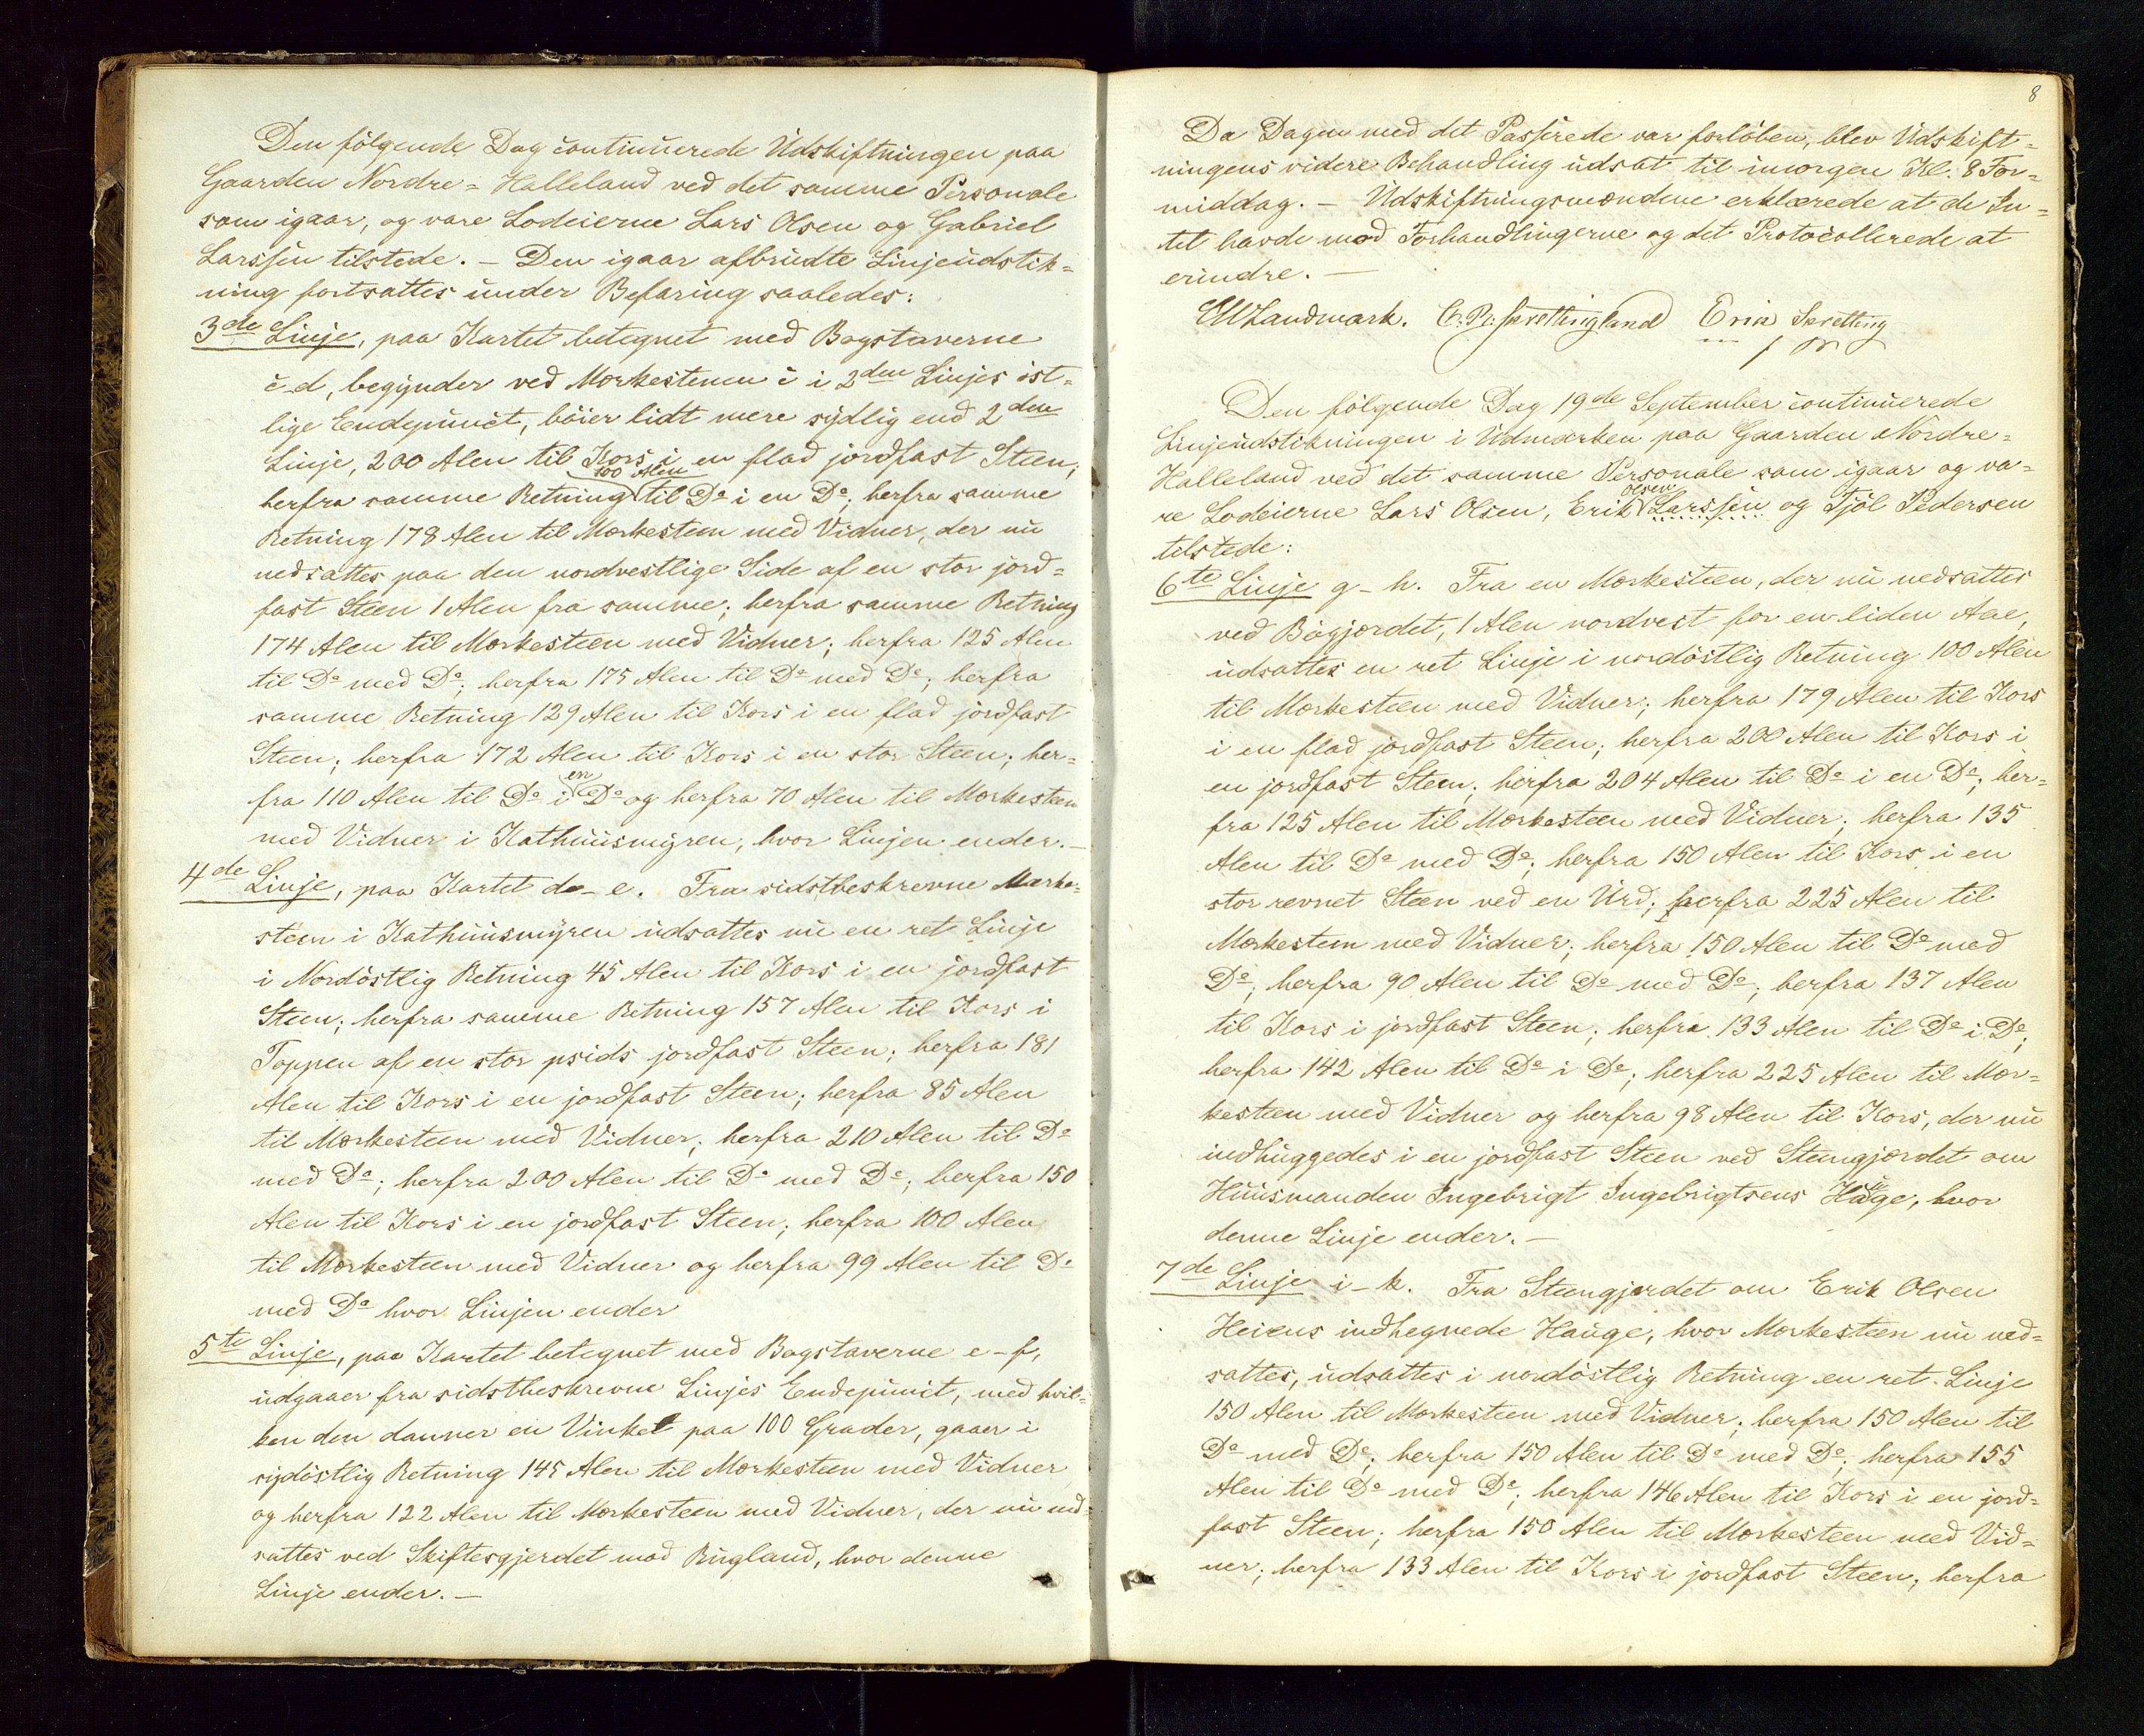 Den følgende Dag continuerede Udskiftningen paa
Gaarden Nordre=Halleland ved det samme Personale
som igaar, og vare Lodeierne Lars Olsen og Gabriel
Larssen tilstede. – Den igaar afbrudte Linjeudstik=
ning fortsattes under Befaring saaledes:
3de Linje, paa Kartet betegnet med Bogstaverne
c-d, begynder ved Mærkestenen c i 2den Linjes øst=
lige Endepunct, bøier lidt mere sydlig end 2den
Linje, 200 Alen til Kors i en flad jordfast Steen;
100 Alen
herfra samme Retning til Do i en Do; herfra samme
Retning 178 Alen til Mærkesteen med Vidner, der nu
nedsattes paa den nordvestlige Side af en stor jord=
fast Steen 1 Alen fra samme; herfra samme Retning
174 Alen til Mærkesteen med Vidner; herfra 125 Alen
til Do med Do; herfra 175 Alen til Do med Do; herfra
samme Retning 129 Alen til Kors i en flad jordfast
Steen; herfra 172 Alen til Kors i en stor Steen; her=
en
fra 110 Alen til Do i Do og herfra 70 Alen til Mærkesteen
med Vidner i Kathuusmyren, hvor Linjen ender. –
4de Linje, paa Kartet d – e. Fra sidstbeskrevne Mærke=
steen i Kathuusmyren udsattes nu en ret Linje
i Nordøstlig Retning 45 Alen til Kors i en jordfast
Steen; herfra samme Retning 157 Alen til Kors i
Toppen af en stor psids jordfast Steen; herfra 181
Alen til Kors i en jordfast Steen; herfra 85 Alen
til Mærkesteen med Vidner; herfra 210 Alen til Do
med Do; herfra 200 Alen til Do med Do; herfra 150
Alen til Kors i en jordfast Steen; herfra 100 Alen
til Mærkesteen med Vidner og herfra 99 Alen til Do
med Do hvor Linjen ender
5te Linje, paa Kartet betegnet med Bogstaverne e – f,
udgaaer fra sidstbeskrevne Linjes Endepunct, med hvil=
ken den danner en Vinkel paa 100 Grader, gaaer i
sydøstlig Retning 145 Alen til Mærkesteen med Vidner
og herfra 122 Alen til Mærkesteen med Vidner, der nu ned=
sattes ved Skiftesgjerdet mod Rugland, hvor denne
Linje ender. –
8
Da Dagen med det Passerede var forløben, blev Udskift=
ningens videre Behandling udsat til imorgen Kl. 8 For=
middag. – Udskiftningsmændene erklærede at de In=
tet havde mod Forhandlingerne og det Protocollerede at
erindre. –
Landmark.
Den følgende Dag 19de September continuerede
Linjeudstikningen i Udmarken paa Gaarden Nordre=
Halleland ved det samme Personale som igaar og va=
Olsen
re Lodeierne Lars Olsen, Erik Larssen og Tjøl Pedersen
tilstede:
6te Linje g – h. Fra en Mærkesteen, der nu nedsattes
ved Bøgjærdet, 1 Alen nordvest for en liden Aae,
udsattes en ret Linje i nordøstlig Retning 100 Alen
til Mærkesteen med Vidner; herfra 179 Alen til Kors
i en flad jordfast Steen; herfra 200 Alen til Kors i
en jordfast Steen; herfra 204 Alen til Do i en Do; her=
fra 125 Alen til Mærkesteen med Vidner; herfra 135
Alen til Do med Do; herfra 150 Alen til Kors i en
stor revnet Steen ved en Urd; herfra 225 Alen til
Mærkesteen med Vidner; herfra 150 Alen til Do med
Do; herfra 90 Alen til Do med Do; herfra 137 Alen
til Kors i jordfast Steen; herfra 133 Alen til Do i Do;
herfra 142 Alen til Do i Do; herfra 225 Alen til Mær=
kesteen med Vidner og herfra 98 Alen til Kors, der nu
indhuggedes i en jordfast Steen ved Steengjærdet om
Huusmanden Ingebrigt Ingebrigtsens Hauge, hvor
denne Linje ender. –
7de Linje i – k. Fra Steengjærdet om Erik Olsen
Heiens indhegnede Hauge, hvor Mærkesteen nu ned=
sattes, udsattes i nordøstlig Retning en ret Linje
150 Alen til Mærkesteen med Vidner; herfra 150 Alen til
Do med Do; herfra 150 Alen til Do med Do; herfra 155
Alen til Do med Do; herfra 146 Alen til Kors i en jord=
fast Steen; herfra 150 Alen til Mærkesteen med Vid=
ner; herfra 133 Alen til Kors i jordfast Steen; herfra